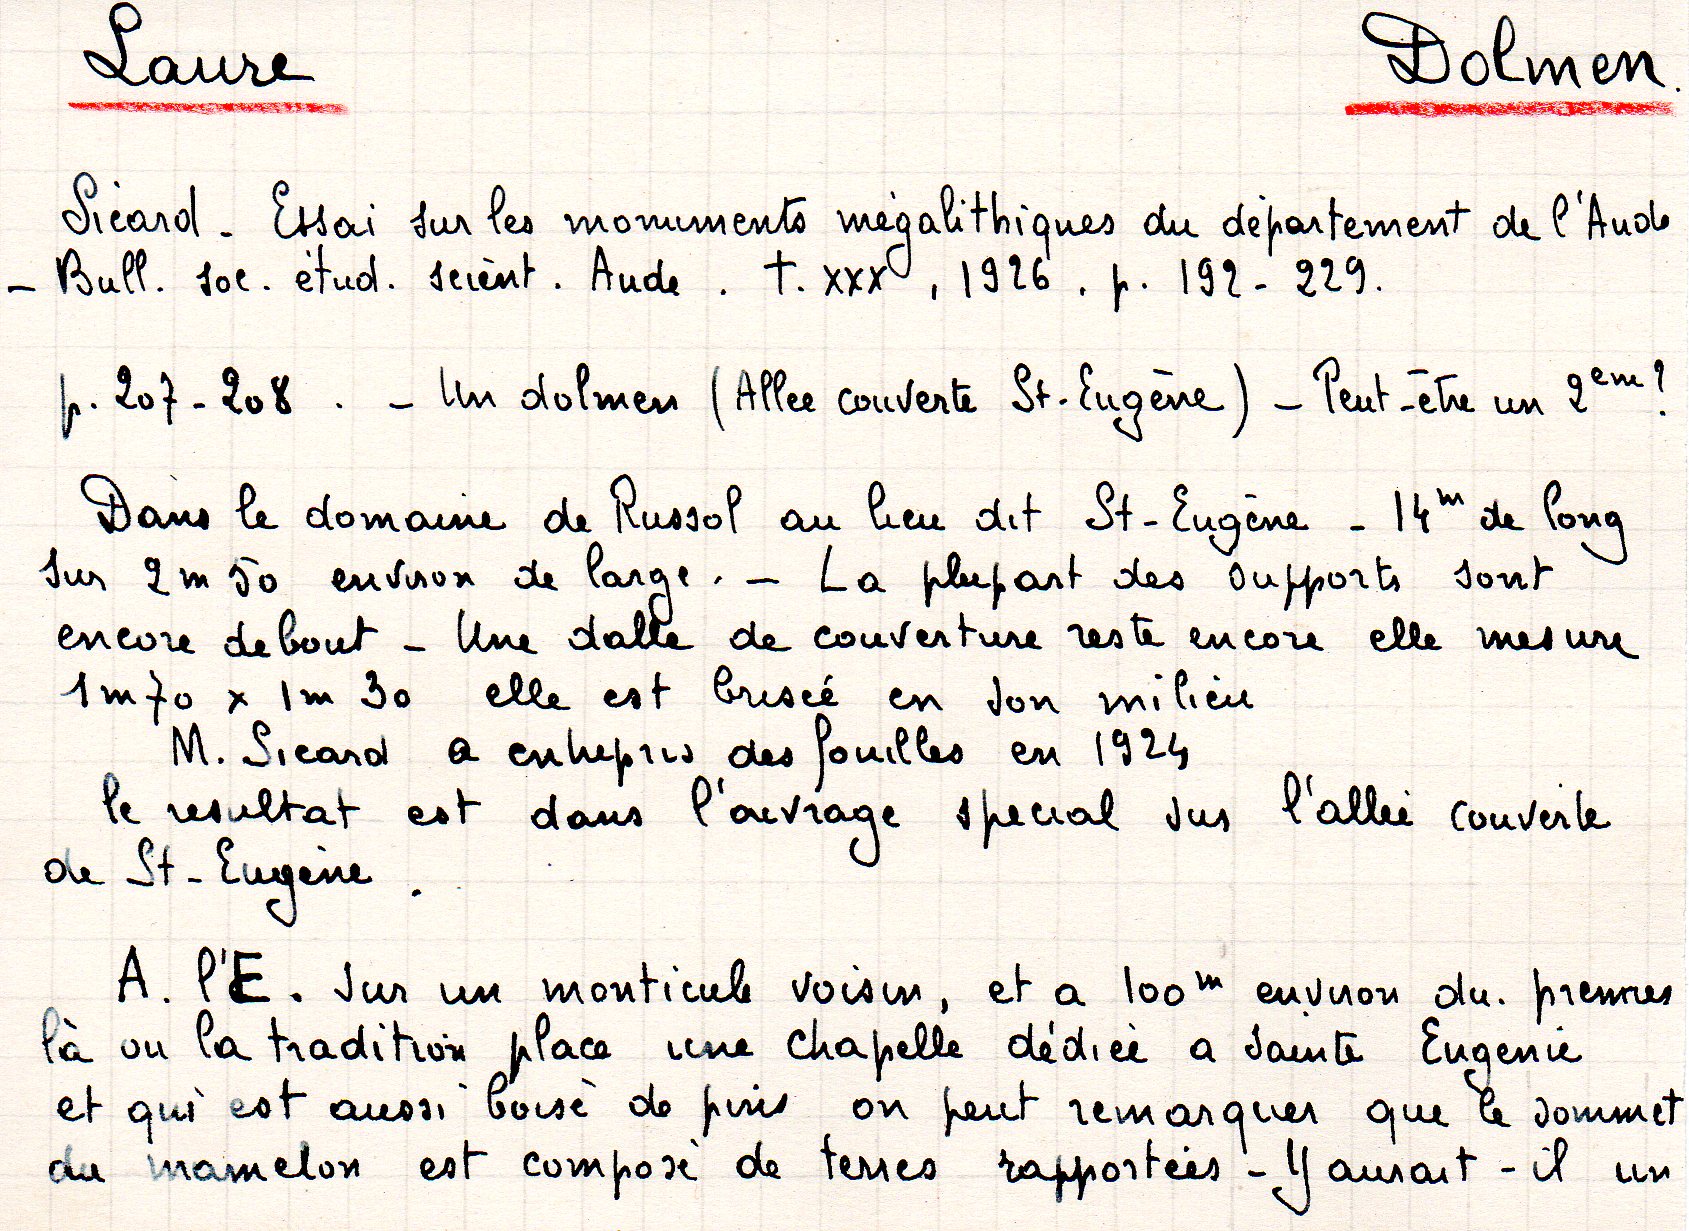 Laure Dolmen.
Sicard - Essai sur les monuments mégalithiques du département de l'Aude
- Bull. soc. étud. scient. Aude. t. XXX, 1926. p. 192-229.
p. 207-208. - Un dolmen (Allee couverte St-Eugène) - Peut-être un 2em ?
Dans le domaine de Russol au lieu dit St-Eugène - 14m de long
sur 2m50 environ de large. - La plupart des supports sont
encore debout - Une dalle de couverture reste encore elle mesure
1m70 x 1m30 elle est brisée en son milieu
M. Sicard a entrepris des fouilles en 1924
le resultat est dans l'ouvrage special sur l'allée couverte
de St-Eugène.
A. l'E. sur un monticule voisin, et a 100m environ du. premier
là ou la tradition place une chapelle dédiée a sainte Eugenie
et qui est aussi boisé de pins on peut remarquer que le sommet
du mamelon est composé de terres rapportées - Y aurait-il un